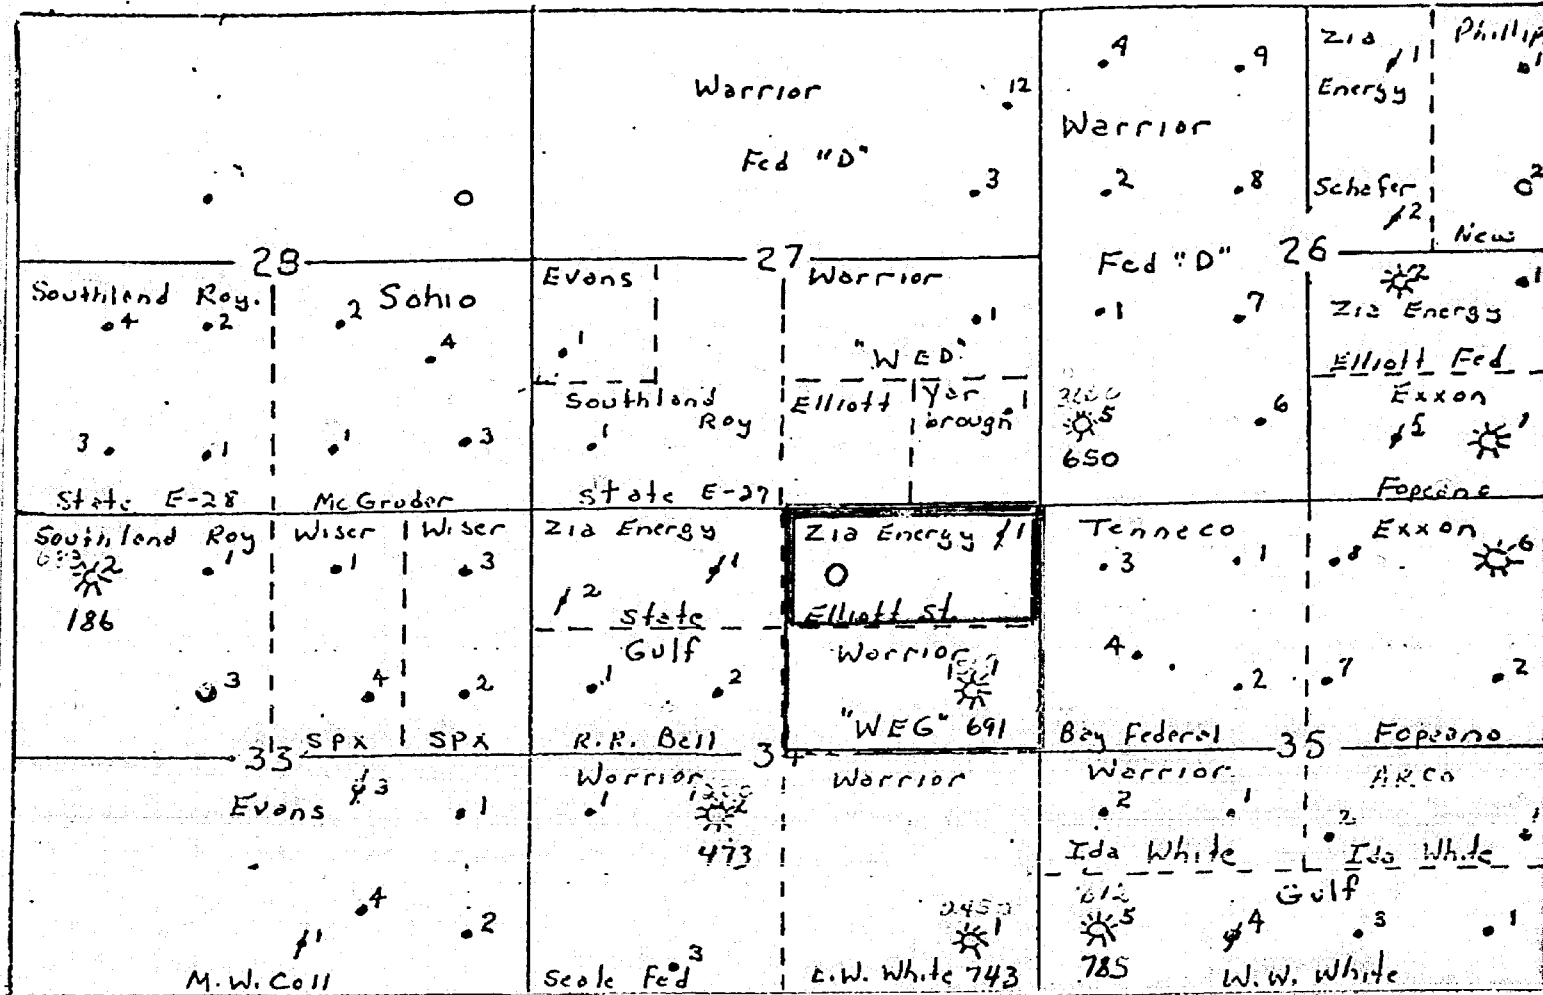 Warrior
12
Fed "D"
3
4
9
Warrior
2
8
Fed "D"
Zia
1
Energy
Schafer
2
Phillip
1
2
New
28
27
26
Southland Roy.
4
2
3
1
State E-28
Sohio
2
4
1
3
McGruder
Evans
1
Southland
Roy
1
State E-27
Warrior
1
"WED"
Elliott
Yar
brough
1
1
7
5
650
6
2
1
Zia Energy
Elliott Fed
Exxon
Fopeano
Southland Roy
2
1
186
3
Wiser
1
4
SPX
Wiser
3
2
SPX
Zia Energy
1
2
State
Gulf
1
2
R.R. Bell
Zia Energy 1
Elliott St.
Warrior
"WEG" 691
Tenneco
3
1
4
2
Bay Federal
Exxon
8
6
7
2
Fopeano
33
34
35
3
Evans
1
4
1
2
M.W. Coll
Warrior
1
2
473
3
Seale Fed
Warrior
1
743
Warrior
2
1
Ida White
ARCO
2
1
Ida White
Gulf
5
785
4
3
1
W.W. White